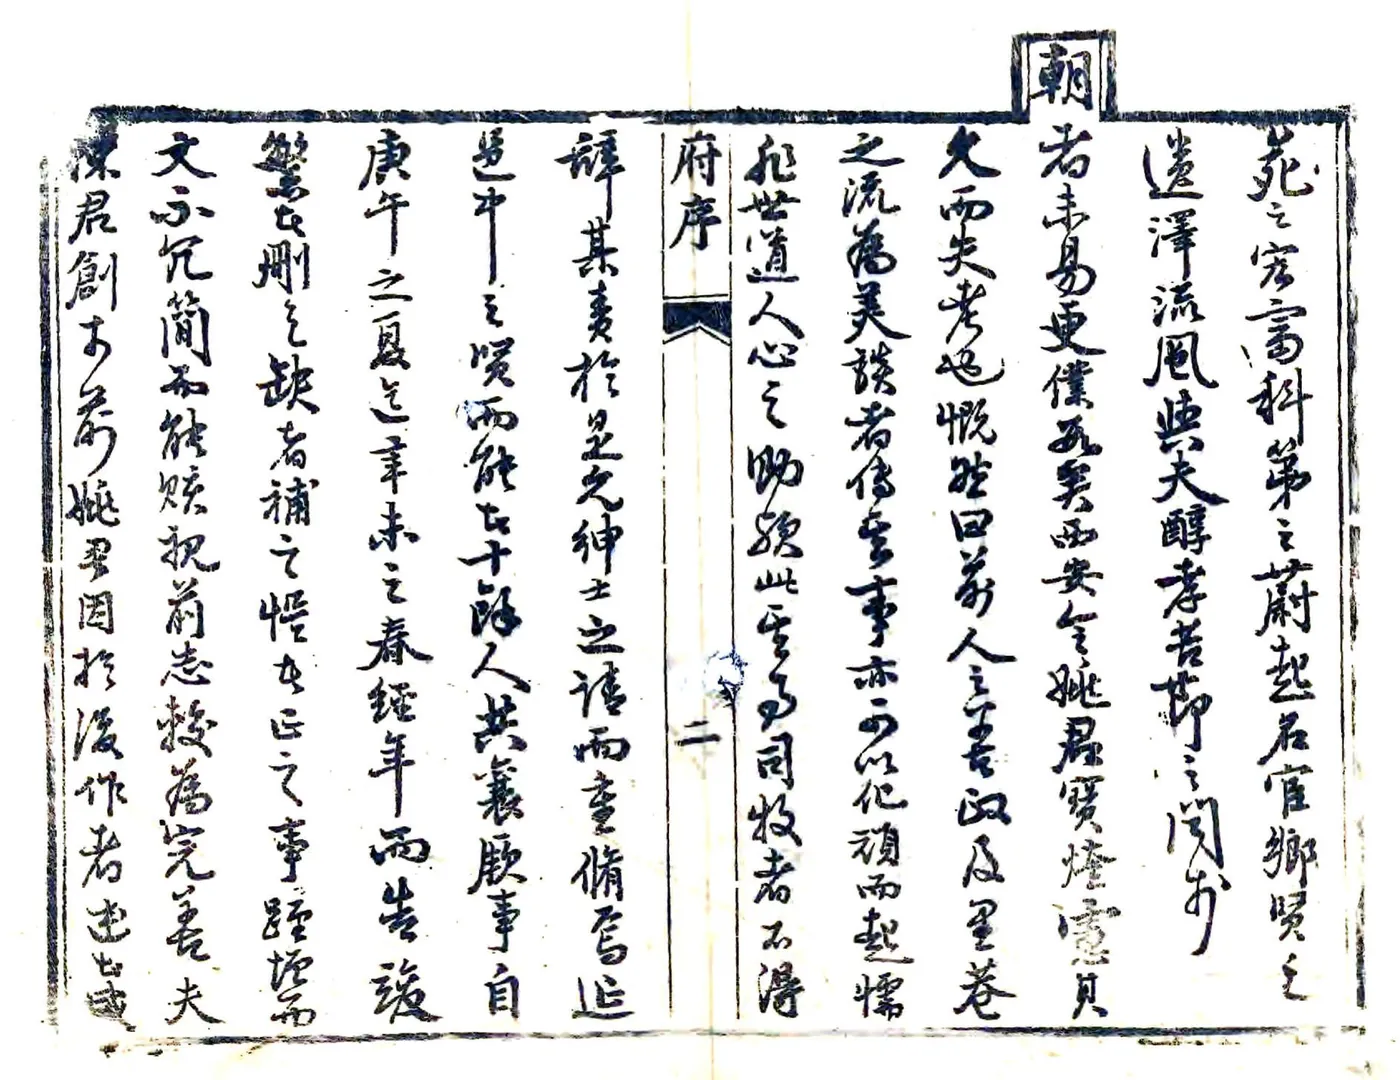 朝
苑之宏富科第之蔚起名官鄉賢之
遺澤流風與夫醇孝苦節之閭
者未易更僕數矣西安令姚君寶煃慮其
久而失考也慨然曰前人之善政及里巷
之流為美談者傳其事亦可以化頑而起懦
非世道人心之助歟此其為司牧者不得
府序
二
辭其責於是允紳士之請而重脩焉延
邑中之賢而能者十餘人共襄厥事自
庚午之夏迄辛未之春經年而告竣
繁者刪之缺者補之悞者正之事蹟增而
文不冗簡而能賅視前志較為完善夫
陳君創于前姚君因於後作者述者